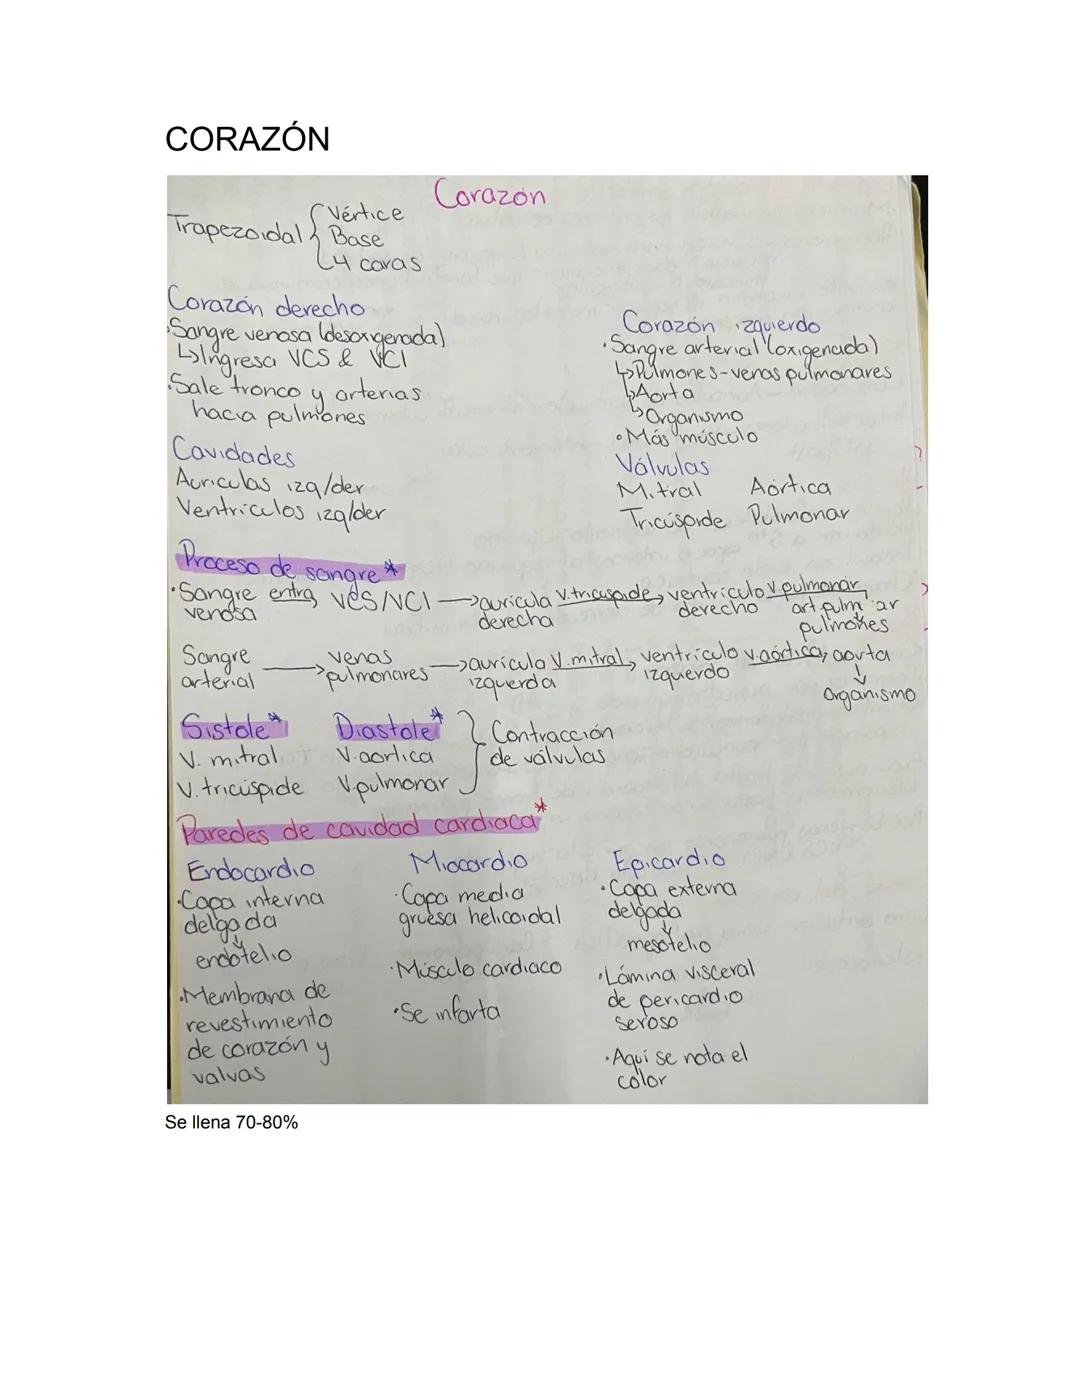 CORAZÓN
Corazón
Trapezoidal
Vértice
Base
4 caras
Corazón derecho
·Sangre venosa (desoxigenada)
↳Ingresa VCS & VCI
·Sale tronco y arterias
hacia pulmones
Corazón izquierdo
·Sangre arterial (oxigenada)
↳Pulmones-venas pulmonares
↳Aorta
↳Organismo
·Más músculo
Cavidades
Aurículas izq/der
Ventrículos izq/der
Válvulas
Mitral Aórtica
Tricúspide Pulmonar
Proceso de sangre*
·Sangre venosa entra VCS/VCI → aurícula derecha v.tricuspide → ventrículo derecho v.pulmonar art pulm ar
pulmones
Sangre arterial → venas pulmonares → aurícula izquerda v.mitral → ventrículo izquerdo v.aórtica → aorta
↓
Organismo
Sístole* Diastole* Contracción
V. mitral V.aortica de válvulas
V. tricúspide V.pulmonar
Paredes de cavidad cardiaca*
Endocardio
·Capa interna
delgada
↓
endotelio
·Membrana de
revestimiento
de corazón y
valvas
Miocardio
·Capa media
gruesa helicoidal
·Músculo cardiaco
·Se infarta
Epicardio
·Capa externa
delgada
↓
mesotelio
·Lámina visceral
de pericardio
seroso
·Aquí se nota el
color
Se llena 70-80%